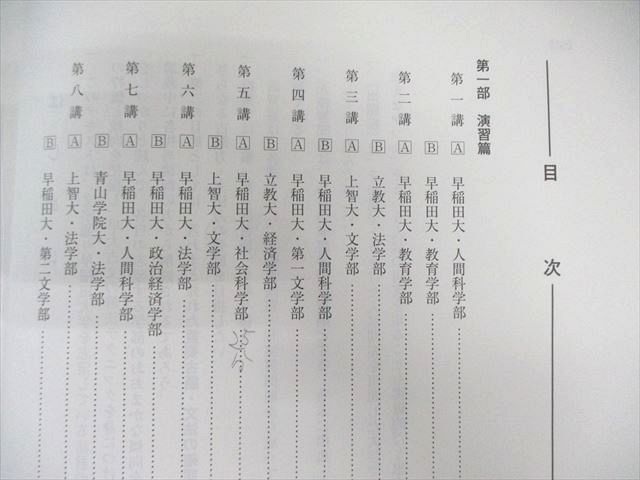 目次
第一部 演習篇
第一講 A 早稲田大・人間科学部
B 早稲田大・教育学部
第二講 A 早稲田大・教育学部
B 立教大・法学部
第三講 A 上智大・文学部
B 早稲田大・人間科学部
第四講 A 早稲田大・第一文学部
B 立教大・経済学部
第五講 A 早稲田大・社会科学部
B 上智大・文学部
第六講 A 早稲田大・法学部
B 早稲田大・政治経済学部
第七講 A 早稲田大・人間科学部
B 青山学院大・法学部
第八講 A 上智大・法学部
B 早稲田大・第二文学部